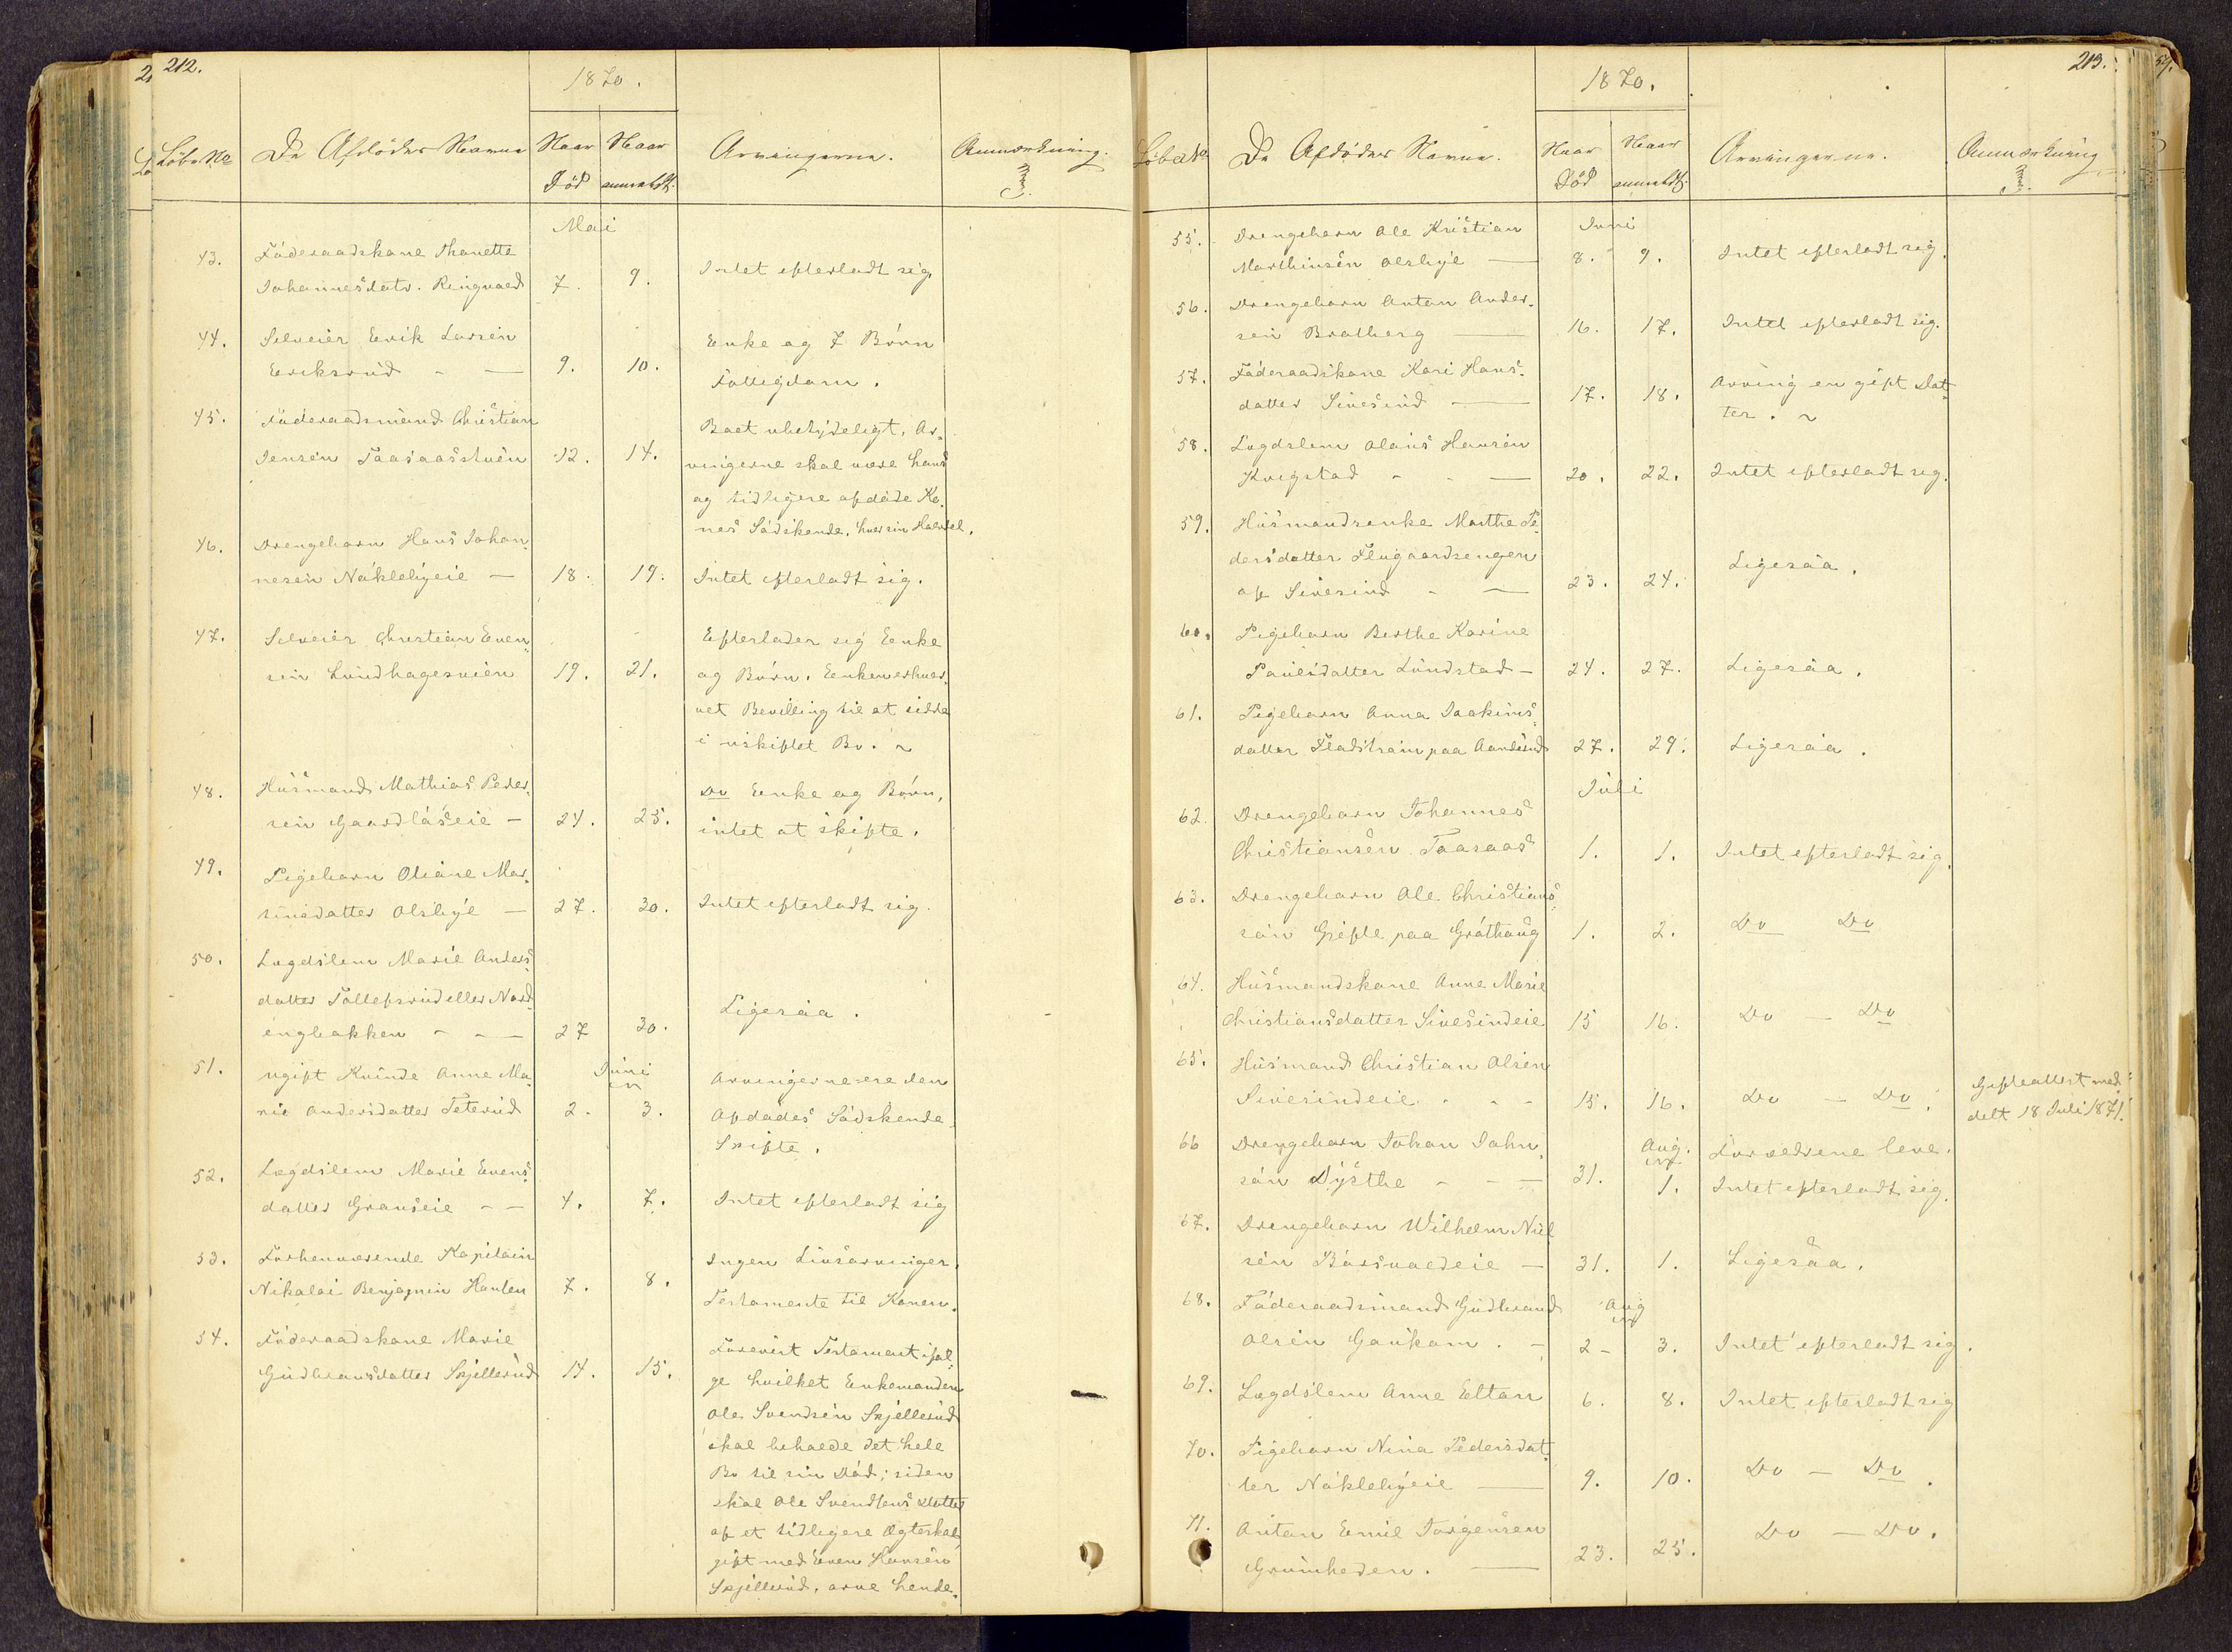 212.
1870.
Löbe No
De Afdödes Navne
Naar Död
Naar anmeldt.
Arvingerne.
Anmærkning.
Mai
43. Föderaadskone Thonette
Johannesdatr. Ringvold 7. 9. Intet efterladt sig.
44. Selveier Erik Larsen Enke og 7 Börn
Eriksrud - — 9. 10. Fattigdom.
45. Föderaadsmand Christian
Jensen Taasaasstuen 12. 14. Boet ubetydeligt, Ar-
vingerne skal være hans
og tidligere afdöde Ko-
nes Södskende, hver sin Halvdel.
46. Drengebarn Hans Johan-
nesen Nöklebyeie — 18. 19. Intet efterladt sig.
47. Selveier Christian Even- Efterlader sig Enke
sen Lundhagesveen 19. 21. og Börn. Enken erhver-
vet Bevilling til at sidde
i uskiftet Bo.
48. Husmand Mathias Peder- Do Enke og Börn,
sen Gaardlöseie — 24. 25. intet at skifte.
49. Pigebarn Oliane Mar-
tinsdatter Olsbye — 27. 30. Intet efterladt sig.
50. Lægdslem Marie Anders-
datter Tollefsrud eller Nord-
engbakken - — 27 30. Ligesaa.
51. ugift Kvinde Anne Ma- Juni Arvingerne ere den
rie Andersdatter Teterud 2. 3. Afdödes Södskende.
Skifte.
52. Lægdslem Marie Evens-
datter Granseie - - 4. 7. Intet efterladt sig
53. Forhenværende Kapitain Ingen Livsarvinger,
Nikolai Benjamin Hanten 7. 8. Testamente til Konen.
54. Föderaadskone Marie
Gudbransdatter Skjellerud 14. 15. Forevist Testament iföl-
ge hvilket Enkemanden
Ole Svendsen Skjellerud
skal beholde det hele
Bo til sin Död; siden
skal Ole Svendsens Datter
af et tidligere Ægteskab,
gift med Even Hansen
Skjellerud, arve hende.
213.
1870.
Löbe No
De Afdödes Navne.
Naar Död
Naar anmeldt.
Arvingerne.
Anmærkning
Juni
55. Drengebarn Ole Kristian
Marthinsen Olsbye — 8. 9. Intet efterladt sig.
56. Drengebarn Anton Ander-
sen Bratberg — 16. 17. Intet efterladt sig.
57. Föderaadskone Kari Hans- Arving en gift Dat-
datter Sivesind — 17. 18. ter.
58. Lægdslem Olaus Hansen
Kvigstad - - — 20. 22. Intet efterladt sig.
59. Husmandsenke Marthe Pe-
dersdatter Flugaardsengen
af Sivesind - — 23. 24. Ligesaa.
60. Pigebarn Berthe Karine
Paulsdatter Lundstad — 24. 27. Ligesaa.
61. Pigebarn Anna Joakims-
datter Fladstrain paa Aandsrud 27. 29. Ligesaa.
Juli
62. Drengebarn Johannes
Christiansen Taasaas 1. 1. Intet efterladt sig.
63. Drengebarn Ole Christian-
sön Gjefle paa Gröthaug 1. 2. Do Do
64. Husmandskone Anne Marie
Christiansdatter Sivesindeie 15 16. Do — Do
65. Husmand Christian Olsen
Sivesindeie - - - 15. 16. Do — Do. Gifteattest med-
delt 18 Juli 1871.
66 Drengebarn Johan John- Aug. Forældrene leve.
sön Dysthe - - — 31. 1. Intet efterladt sig.
67. Drengebarn Wilhelm Niel
sen Börsvoldeie — 31. 1. Ligesaa.
68. Föderaadsmand Gudbrand Aug
Olsen Gaukom. — 2 - 3. Intet efterladt sig.
69. Lægdslem Anne Eltan 6. 8. Intet efterladt sig
70. Pigebarn Nina Pedersdat-
ter Nöklebyeie — 9. 10. Do — Do.
71. Anton Emil Torgensen
Grimheden. — 23. 25. Do — Do.